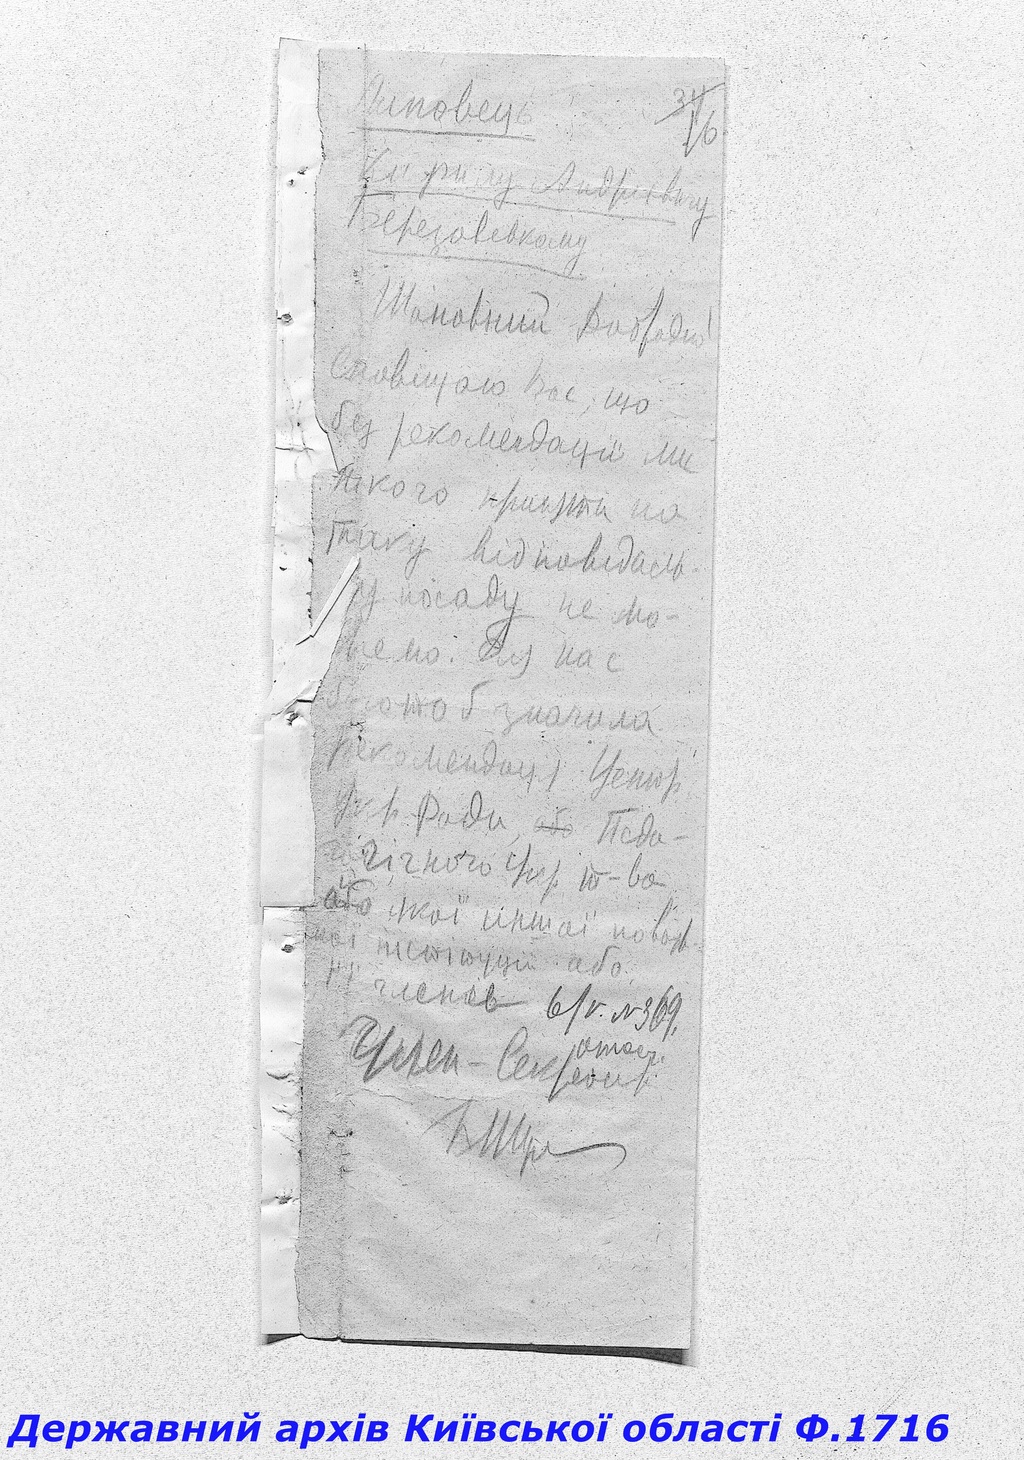 Липовець
31/V 6
Кирилу Андрієвичу
Березовському
Шановний Добродію!
Сповіщаю Вас, що
без рекомендацій ми
нікого приняти на
таку відповідаль-
ну посаду не мо-
жемо. Для нас
багато б значила
рекомендація Центр.
Укр. Ради, або Педа-
гогічного Укр. т-ва
або якої иншої
інстітуції або
її членів 6/V. N 369.
Член-Секретар
В Щ
Державний архів Київської області Ф.1716